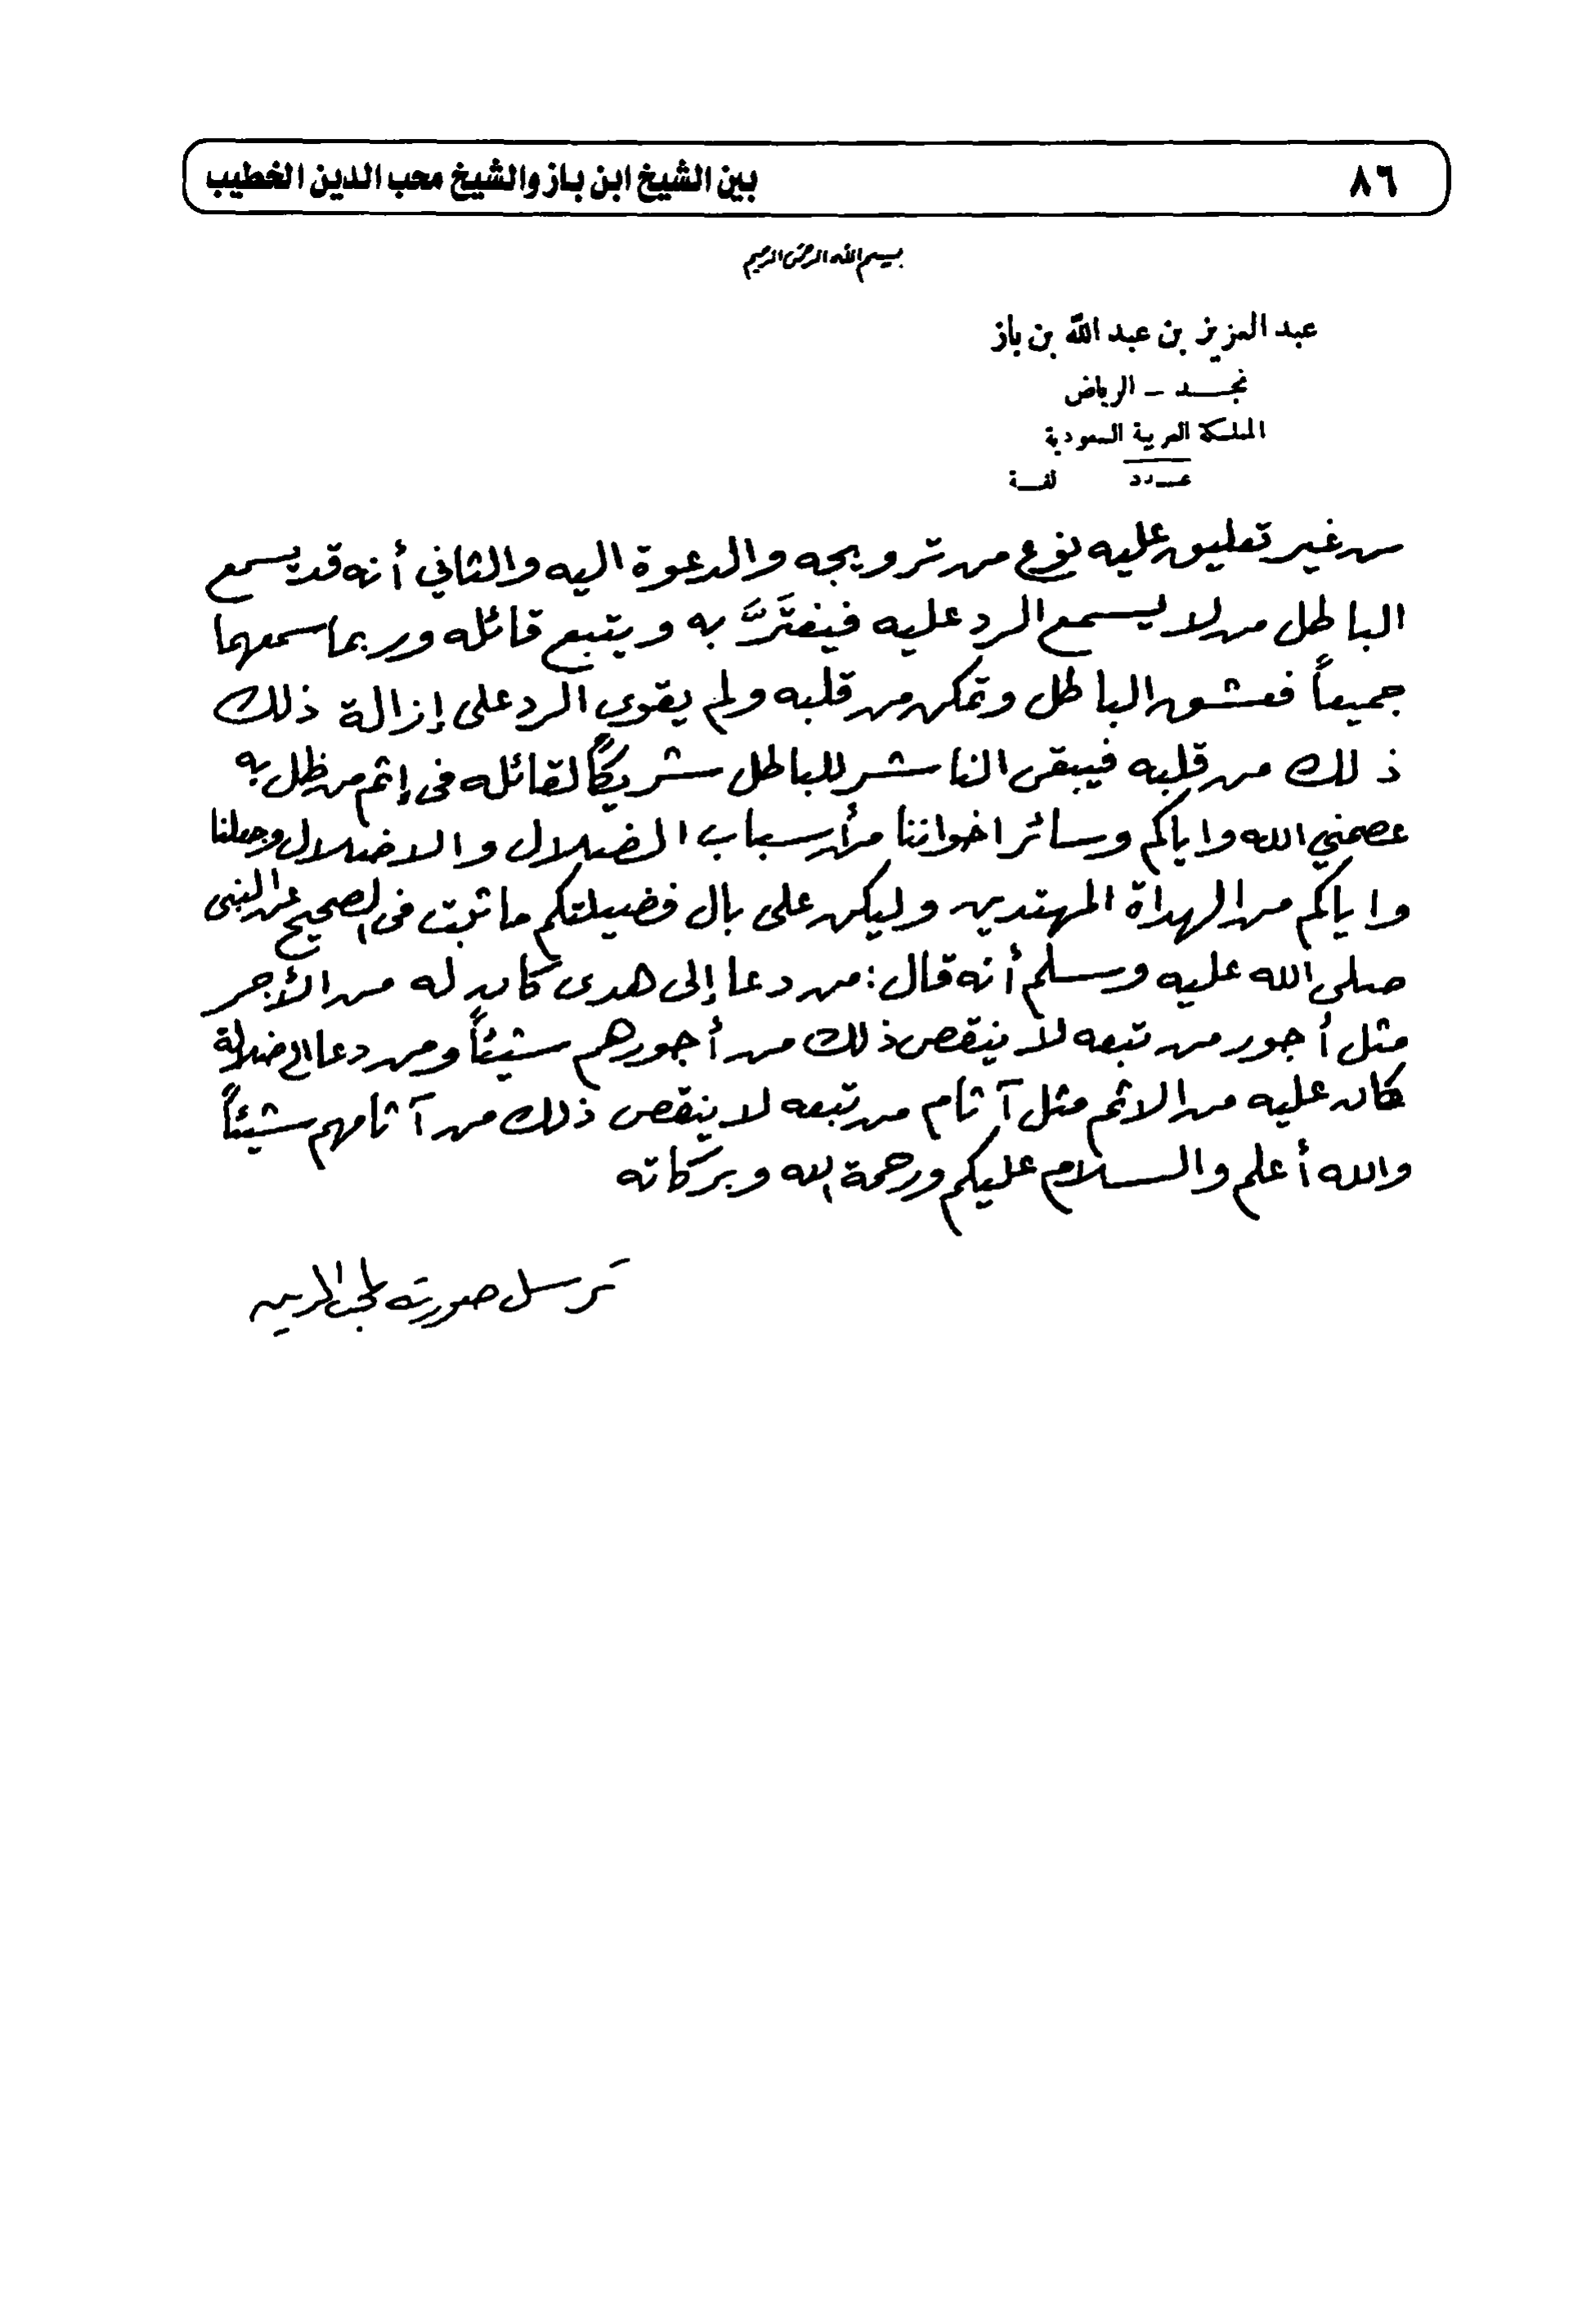 ٨٦
بين الشيخ ابن باز والشيخ محب الدين الخطيب
بسم الله الرحمن الرحيم
عبد العزيز بن عبد الله بن باز
نجد - الرياض
المملكة العربية السعودية
عدد
من غير تعليق عليه نوع من ترويجه والدعوة اليه والثاني أنه قد يسمع
الباطل من لا يسمع الرد عليه فيغتَرَّ به ويتبع قائله وربما سمعهما
جميعاً فعشق الباطل وتمكن من قلبه ولم يقوي الرد على إزالة ذلك
ذلك من قلبه فيبقى الناشر للباطل شريكاً لقائله في إثم من ظل به
عصمني الله واياكم وسائر اخواننا من أسباب الضلال والاضلال وجعلنا
واياكم من الهداة المهتدين وليكن على بال فضيلتكم ما ثبت في الصحيح عن النبي
صلى الله عليه وسلم أنه قال: من دعا إلى هدى كان له من الأجر
مثل أجور من تبعه لا ينقص ذلك من أجورهم شيئاً ومن دعا الى ضلالة
كان عليه من الاثم مثل آثام من تبعه لا ينقص ذلك من آثامهم شيئاً
والله أعلم والسلام عليكم ورحمة الله وبركاته
ترسل صورته لمحب الدين